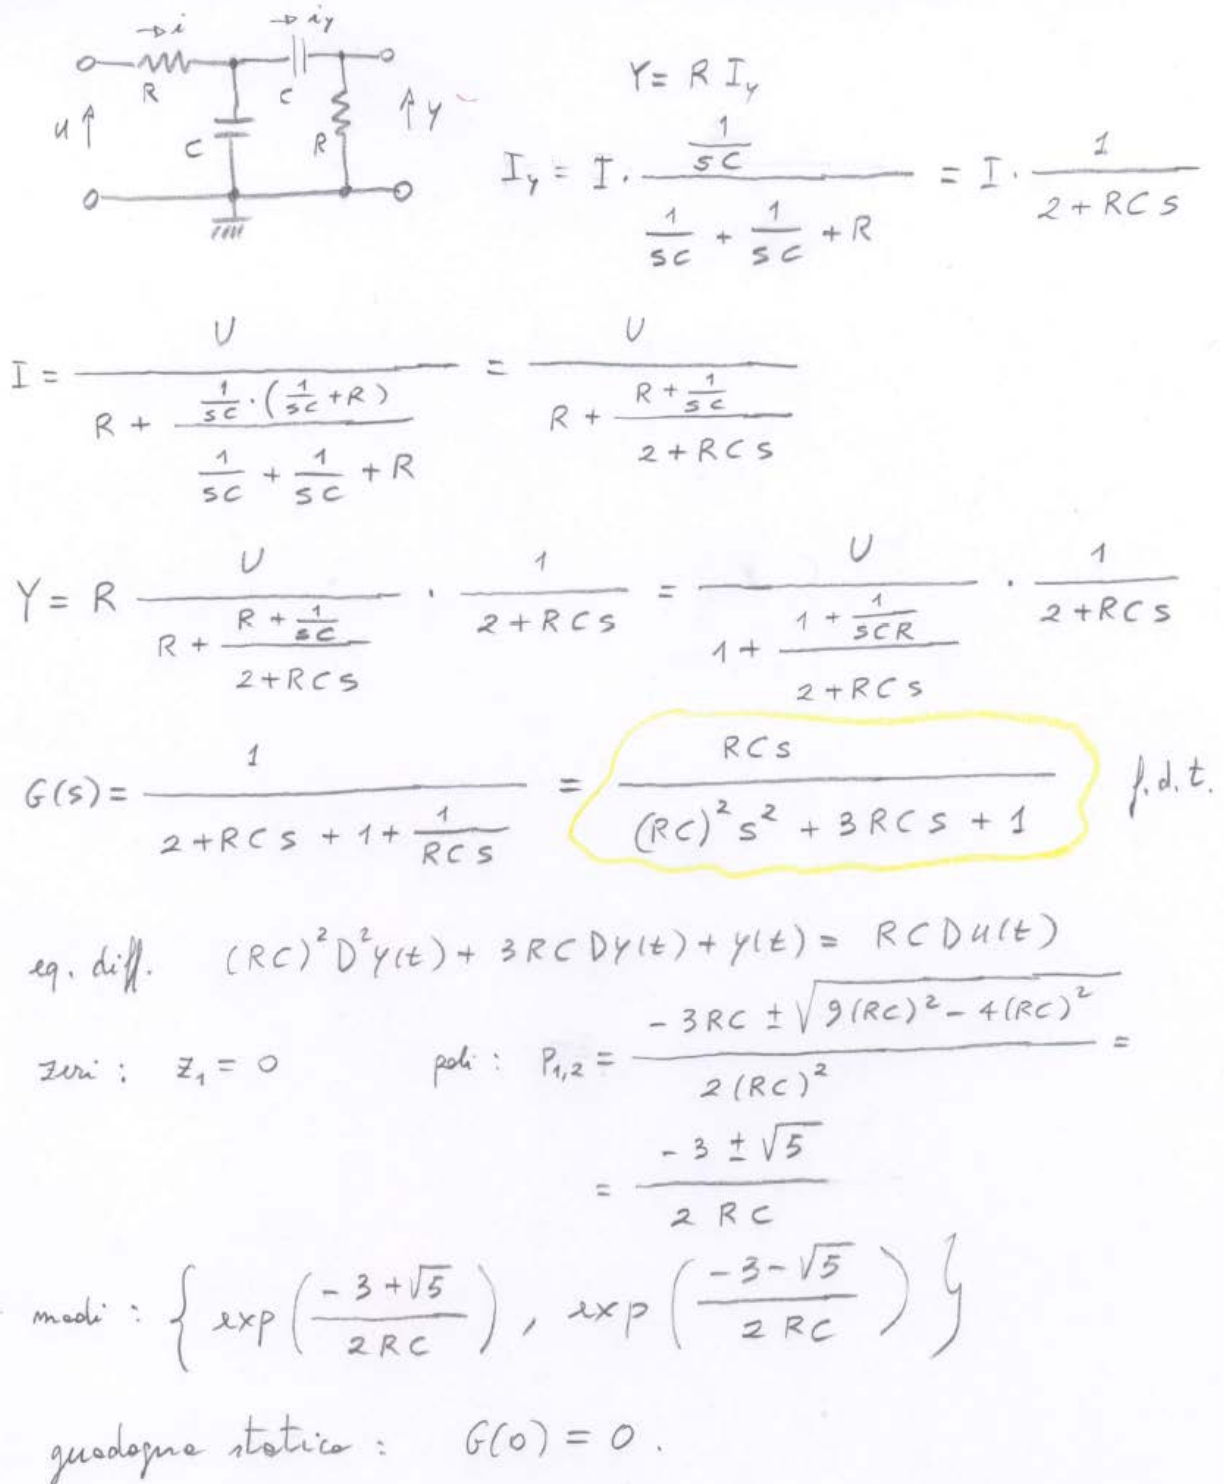 → i → i_y
R C
u ↑ C R ↑ y
Y = R I_y
I_y = I · \frac{\frac{1}{sC}}{\frac{1}{sC} + \frac{1}{sC} + R} = I · \frac{1}{2 + RCs}
I = \frac{U}{R + \frac{\frac{1}{sC} · (\frac{1}{sC} + R)}{\frac{1}{sC} + \frac{1}{sC} + R}} = \frac{U}{R + \frac{R + \frac{1}{sC}}{2 + RCs}}
Y = R \frac{U}{R + \frac{R + \frac{1}{sC}}{2 + RCs}} · \frac{1}{2 + RCs} = \frac{U}{1 + \frac{1 + \frac{1}{sCR}}{2 + RCs}} · \frac{1}{2 + RCs}
G(s) = \frac{1}{2 + RCs + 1 + \frac{1}{RCs}} = \frac{RCs}{(RC)^2 s^2 + 3RCs + 1} f.d.t.
eq. diff. (RC)^2 D^2 y(t) + 3RC Dy(t) + y(t) = RC Du(t)
zeri : z_1 = 0 poli : P_{1,2} = \frac{-3RC ± \sqrt{9(RC)^2 - 4(RC)^2}}{2(RC)^2} =
= \frac{-3 ± \sqrt{5}}{2RC}
modi : { exp(\frac{-3+\sqrt{5}}{2RC}), exp(\frac{-3-\sqrt{5}}{2RC}) }
guadagno statico : G(0) = 0.